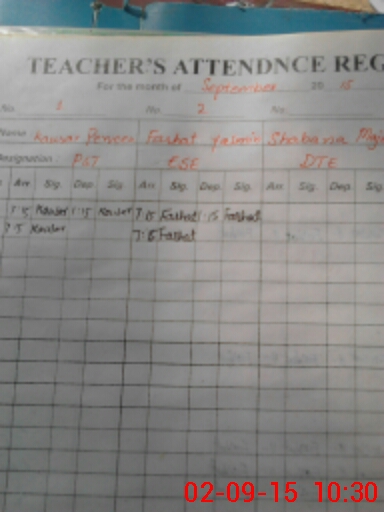 TEACHER'S ATTENDNCE REG
For the month of September 20 15
No. 1 No. 2 No.
Name Kausar Perveen Farhat Yasmin Shabana
Designation: PST ESE DTE
Arr. Sig. Dep. Sig. Arr. Sig. Dep. Sig. Arr. Sig. Dep. Sig.
7:5 Kausar 1:15 Kausar 7:15 Farhat 1:15 Farhat
7:5 Kausar 7:15 Farhat
02-09-15 10:30